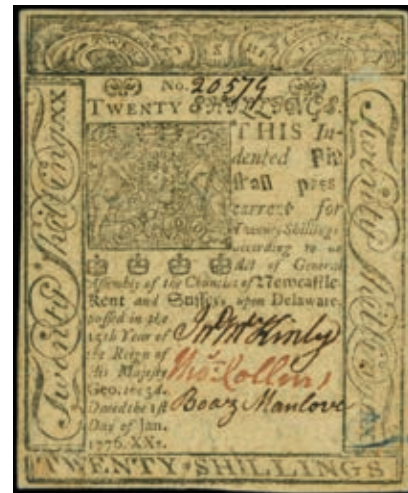 TWENTY SHILLINGS
No. 20579
TWENTY SHILLINGS.
THIS In-
dented Bill
shall pass
current for
Twenty Shillings
according to an
Act of General
Assembly of the Counties of Newcastle
Kent and Sussex, upon Delaware,
passed in the
15th Year of
the Reign of
His Majesty
Geo. the 3d.
Dated the 1st
Day of Jan.
1776. XXs.
Jn McKinly
Thos Collins
Boaz Manlove
Twenty Shillings XX
Twenty Shillings XX
TWENTY SHILLINGS